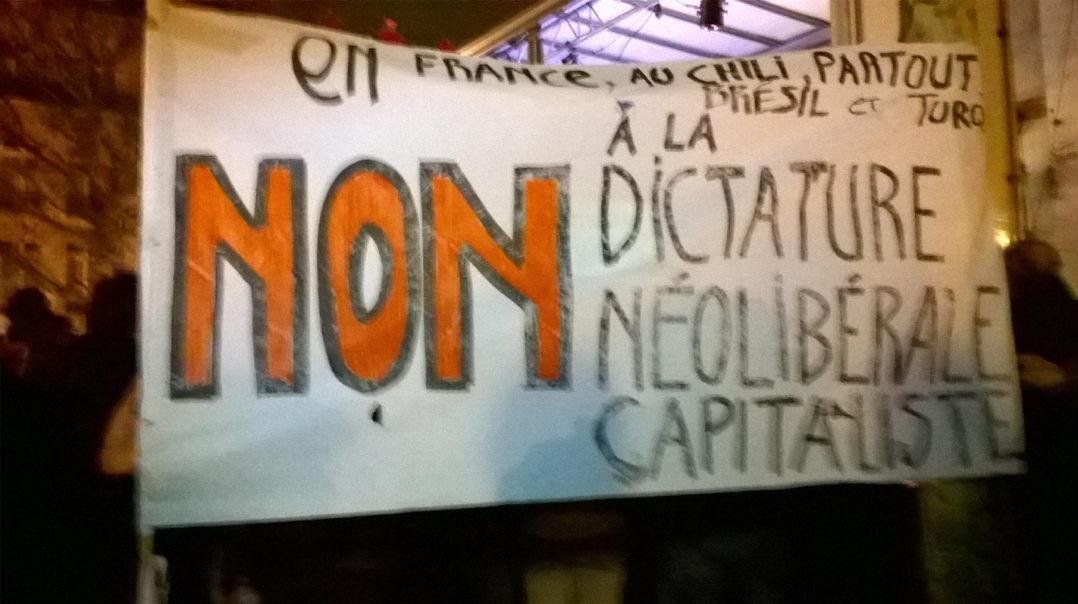 en FRANCE, AU CHILI, PARTOUT
BRÉSIL et
À LA
NON
DICTATURE
NÉOLIBÉRALE
CAPITALISTE